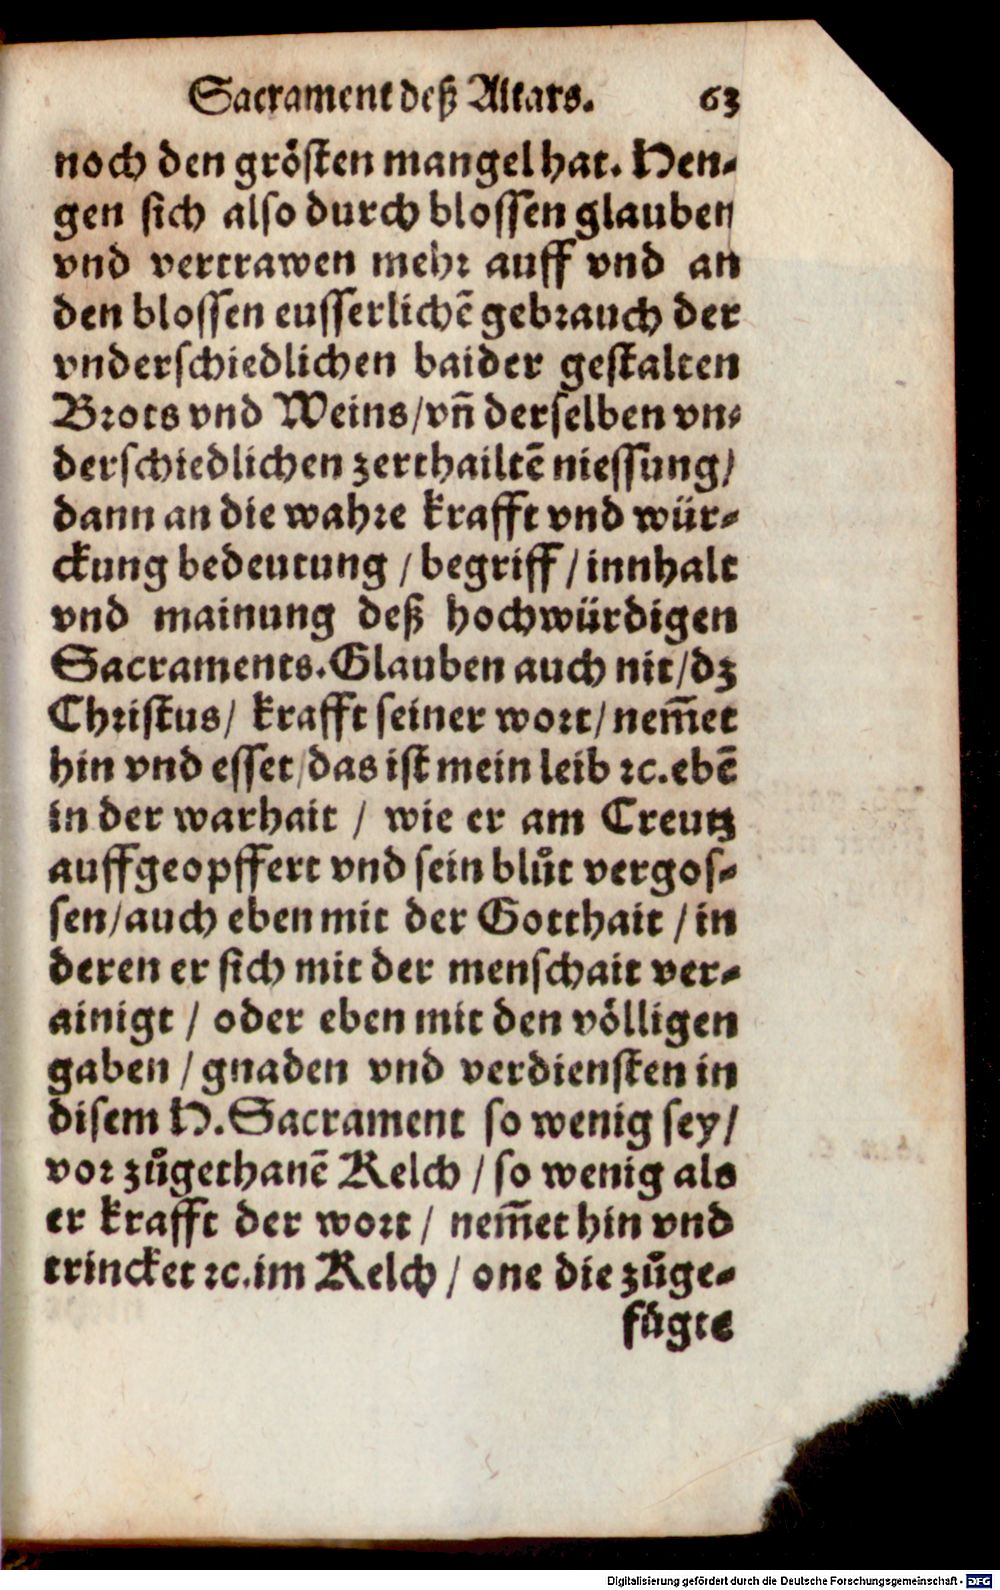 Sacrament deß Altars. 63
noch den grösten mangel hat. Hen-
gen sich also durch blossen glauben
vnd vertrawen mehr auff vnd an
den blossen eusserlichē gebrauch der
vnderschiedlichen baider gestalten
Brots vnd Weins/vn̄ derselben vn-
derschiedlichen zerthailtē niessung/
dann an die wahre krafft vnd wür-
ckung bedeutung / begriff / innhalt
vnd mainung deß hochwürdigen
Sacraments. Glauben auch nit/dz
Christus/ krafft seiner wort/ nem̄et
hin vnd esset/das ist mein leib ꝛc. ebē
in der warhait / wie er am Creutz
auffgeopffert vnd sein blůt vergos-
sen/auch eben mit der Gotthait / in
deren er sich mit der menschait ver-
ainigt / oder eben mit den völligen
gaben / gnaden vnd verdiensten in
disem H. Sacrament so wenig sey/
vor zůgethanē Kelch / so wenig als
er krafft der wort / nem̄et hin vnd
trincket ꝛc. im Kelch / one die zůge-
fůgte
Digitalisierung gefördert durch die Deutsche Forschungsgemeinschaft - DFG